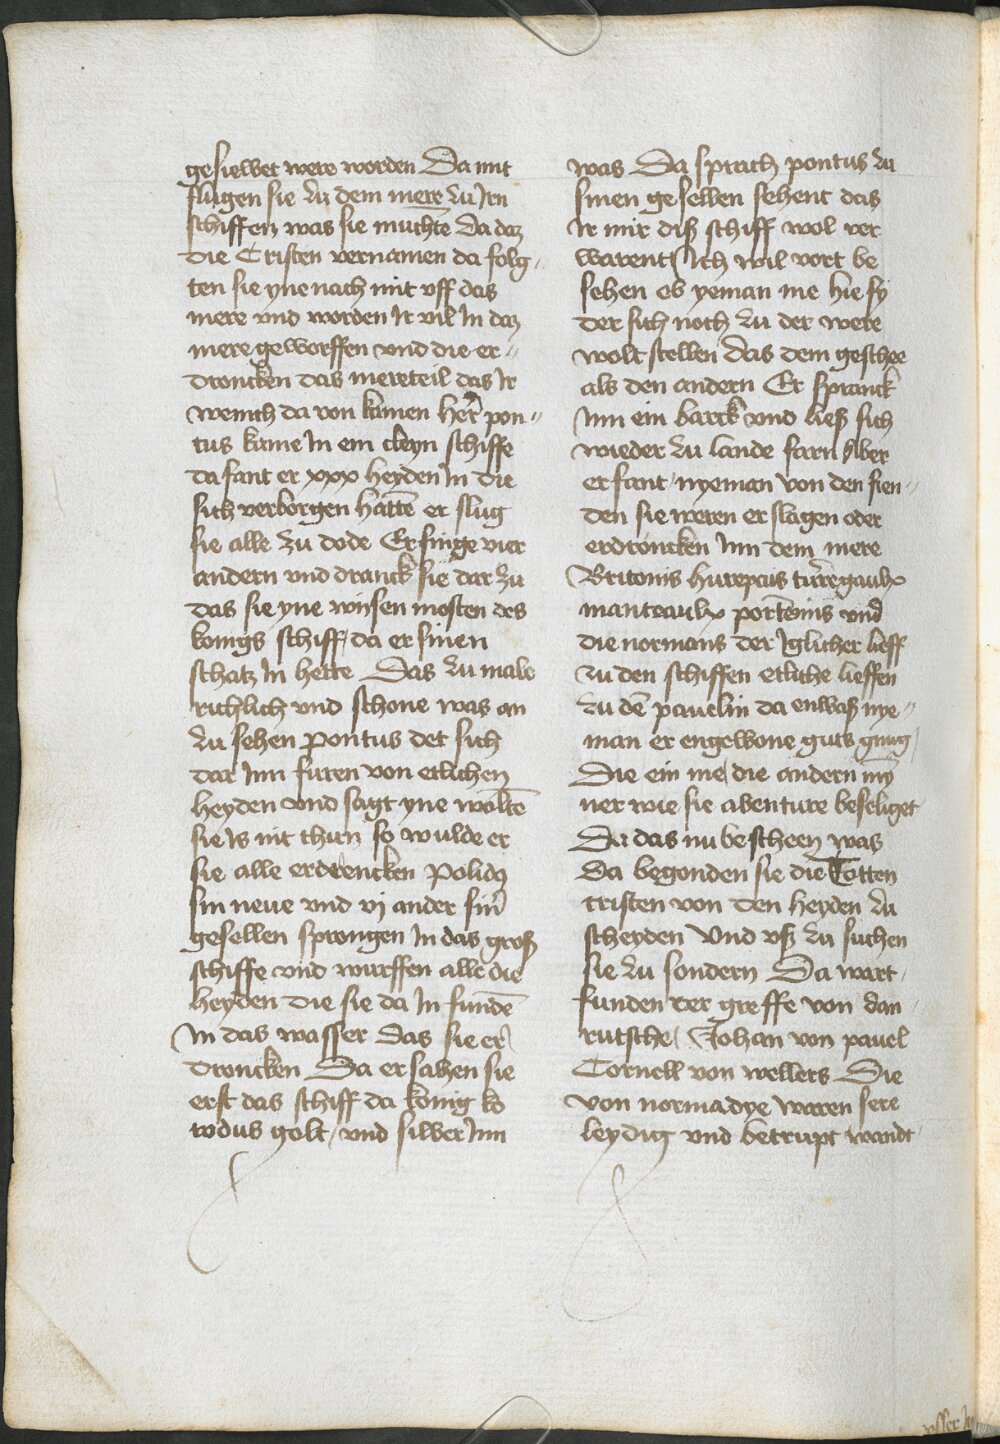 gesiewet were worden Da mit
flugen sie zu dem mere zu Iren
schiffen was sie muchte Da daz
die Cristen vernamen da folg-
ten sie yne nach mit uff das
mere und worden Ir vil In daz
mere geworffen und die er-
droncken das mereteil das Ir
wenich da von kamen Her pon-
tus kame In ein cleyn schiffe
da fant er xxx heyden In die
sich verborgen hatte er slug
sie alle zu dode Er finge vier
andern und dranck sie dar zu
das sie yne wisen mosten des
konigs schiff / da er sinen
schatz In hette Das zu male
richlich und schone was an
zu sehen Pontus det sich
dar Inn furen von etlichen
heyden und sagt yne wolte
sie Is nit thun so wulde er
sie alle erdrencken Polidus
sin neue und vj ander siner
gesellen sprongen In das groß
schiffe und wurffen alle die
heyden die sie da In funde
In das wasser Das sie er
droncken Da er sahen sie
erst das schiff da konig ko
rodus golt / und silber Inn
was Da sprach pontus zu
sinen gesellen sehent das
Ir mir diß schiff wol ver
warent / Ich wil vort be
sehen ob yeman me hie sy
der sich noch zu der were
wolt stellen das dem geschee
als den andern Er spranck
Inn ein barck und ließ sich
wieder zu lande farn Aber
er fant / nyeman von den fien-
den sie weren erslagen oder
erdroncken Inn dem mere
Britonis hurepais turegaulx
manteaulx portemis und
die normans der Iglicher lieff
zu den schiffen etliche lieffen
zu de pavelin da enwaß nye-
man er engewone guts gnug /
Die ein me / die andern my
ner wie sie abenture beseliget
Da das nu bescheen was
Da begonden sie die Totten
cristen von den heyden zu
scheyden Und uß zu suchen
sie zu sondern Da wart
funden der greffe von dan-
rutsche / Johan von pavel
Cornell von wellers Die
von normadye waren sere
leydig und betrupt wandt